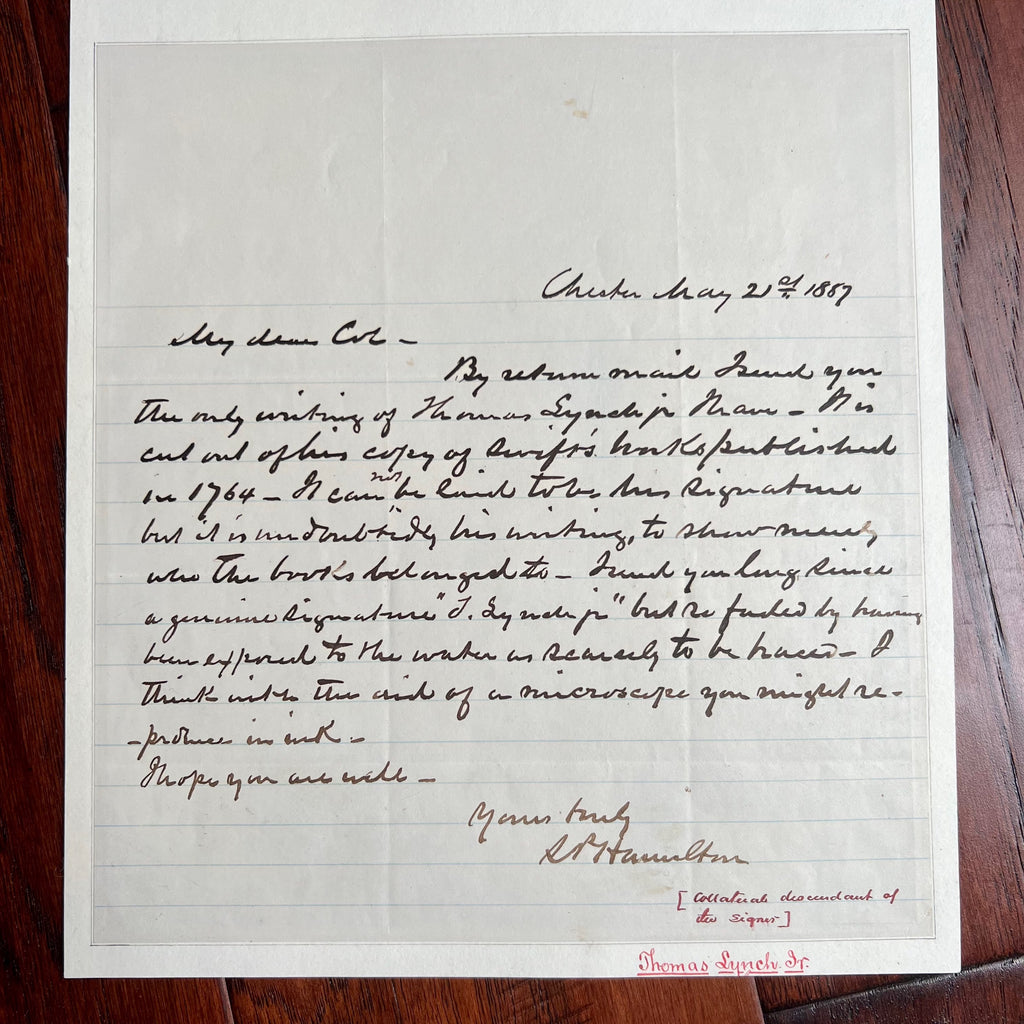 Chester May 21st 1887
My dear Col -
By return mail I send you
the only writing of Thomas Lynch jr I have - It is
cut out of his copy of Swift's works published
in 1764 - It can not be said to be his signature
but it is undoubtedly his writing, to show merely
who the books belonged to - I send you long since
a genuine signature "T. Lynch jr" but so faded by having
been exposed to the water as scarcely to be traced - I
think with the aid of a microscope you might re-
-produce in ink -
I hope you are well -
Yours truly
S P Hamilton
[Collateral descendant of
the signer]
Thomas Lynch Jr.